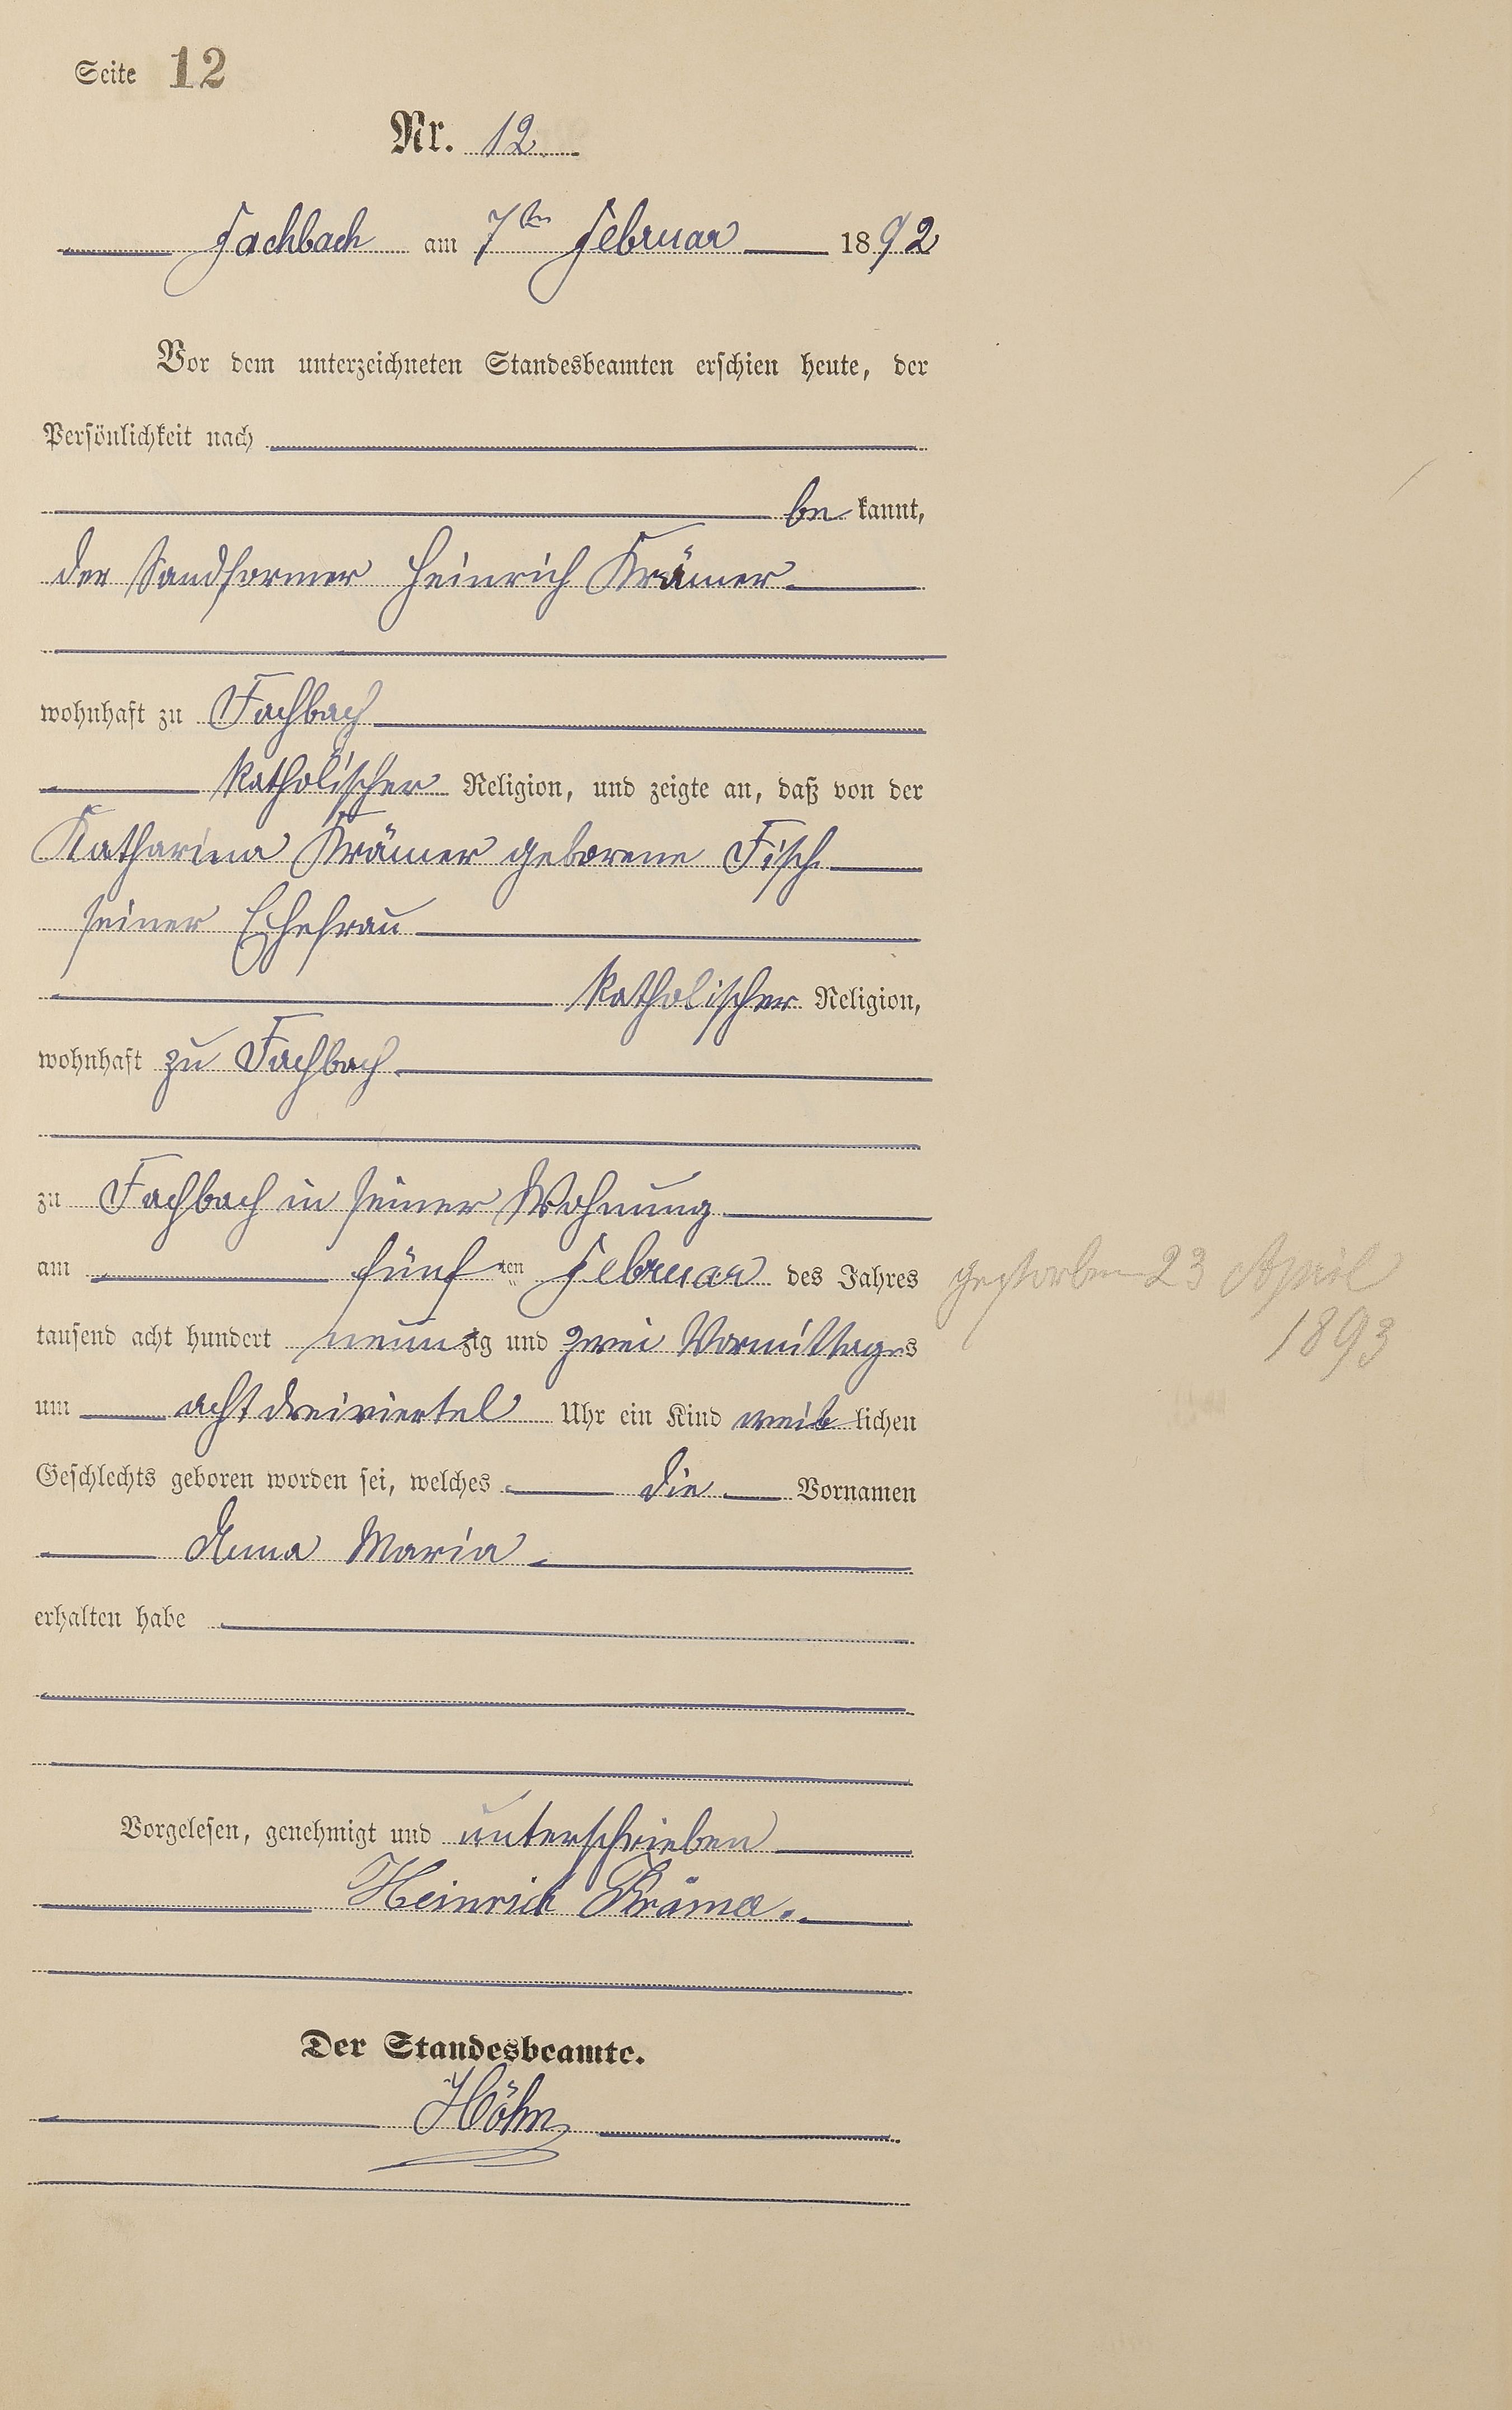 Seite 12
Nr. 12
Fachbach am 7ten Februar 1892
Vor dem unterzeichneten Standesbeamten erschien heute, der
Persönlichkeit nach
bekannt,
der Sandformer Heinrich Krämer
wohnhaft zu Fachbach
katholischer Religion, und zeigte an, daß von der
Katharina Krämer geborene Fisch
seiner Ehefrau
katholischer Religion,
wohnhaft zu Fachbach
zu Fachbach in seiner Wohnung
am fünften Februar des Jahres
gestorben 23 April
tausend acht hundert neunzig und zwei Vormittages
1893
um acht dreiviertel Uhr ein Kind weiblichen
Geschlechts geboren worden sei, welches die Vornamen
Anna Maria
erhalten habe
Vorgelesen, genehmigt und unterschrieben
Heinrich Krämer.
Der Standesbeamte.
Höhn